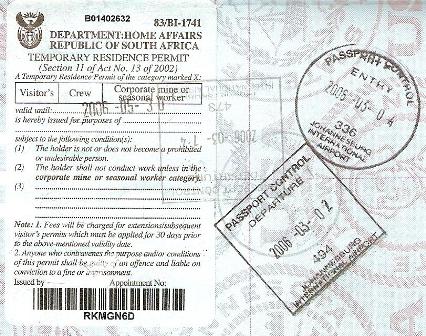 B01402632
83/BI-1741
DEPARTMENT:HOME AFFAIRS
REPUBLIC OF SOUTH AFRICA
TEMPORARY RESIDENCE PERMIT
(Section 11 of Act No. 13 of 2002)
A Temporary Residence Permit of the category marked X:
Visitor's Crew Corporate mine or seasonal worker
valid until: 2006 -05- 3
is hereby issued for purposes of
subject to the following condition(s):
(1) The holder is not or does not become a prohibited
or undesirable person.
(2) The holder shall not conduct work unless in the
corporate mine or seasonal worker category.
(3)
Note: 1. Fees will be charged for extension/subsequent
visitor's permit which must be applied for 30 days prior
to the above-mentioned validity date.
2. Anyone who contravenes the purpose and/or conditions
of this permit shall be guilty of an offence and liable on
conviction to a fine or imprisonment.
Issued by Appointment No:
RKMGN6D
PASSPORT CONTROL
ENTRY
2006 -03- 04
336
JOHANNESBURG
INTERNATIONAL
AIRPORT
PASSPORT CONTROL
DEPARTURE
2006 -03- 02
434
JOHANNESBURG
INTERNATIONAL AIRPORT